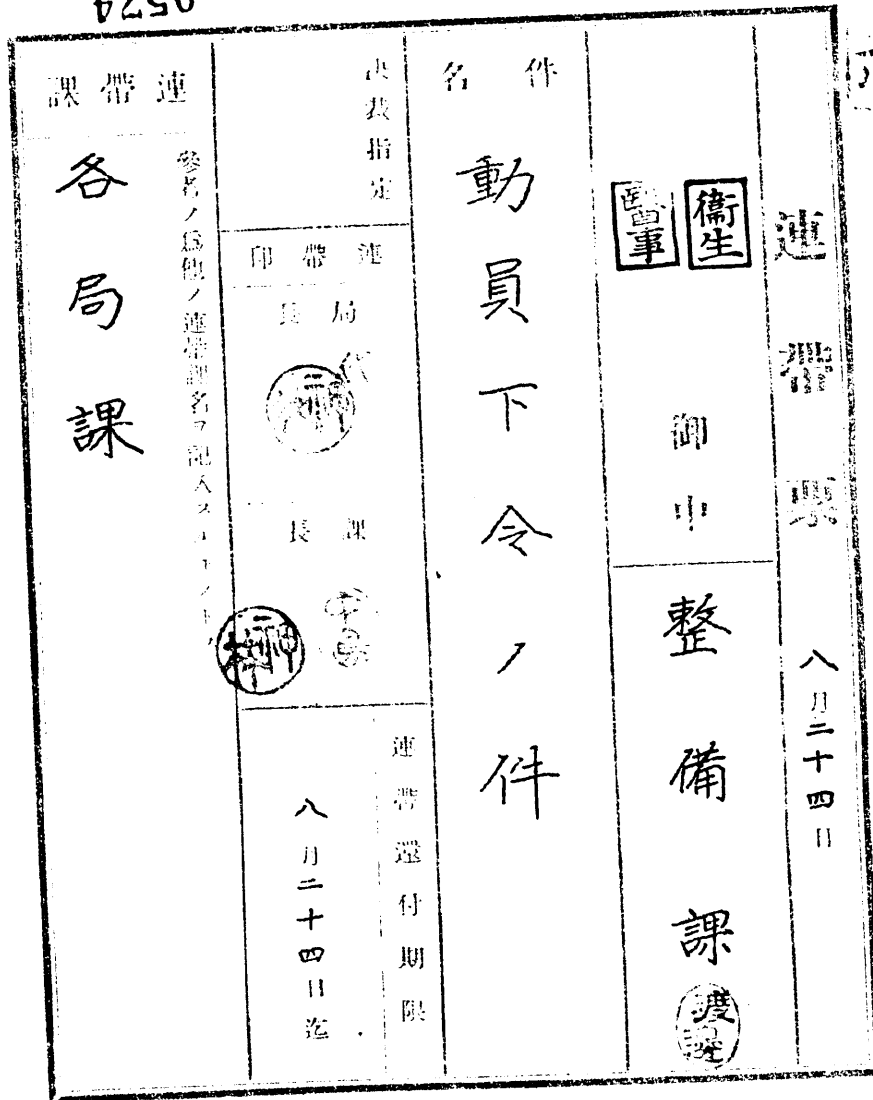 0574
連帶票 八月二十四日
衞生
醫事
御中
整備課
渡邊
件名
動員下令ノ件
決裁指定
連帶印
局長
代
課長
連帶還付期限
八月二十四日迄
連帶課
參考ノ爲他ノ連帶課名ヲ記入スルコト
各局課